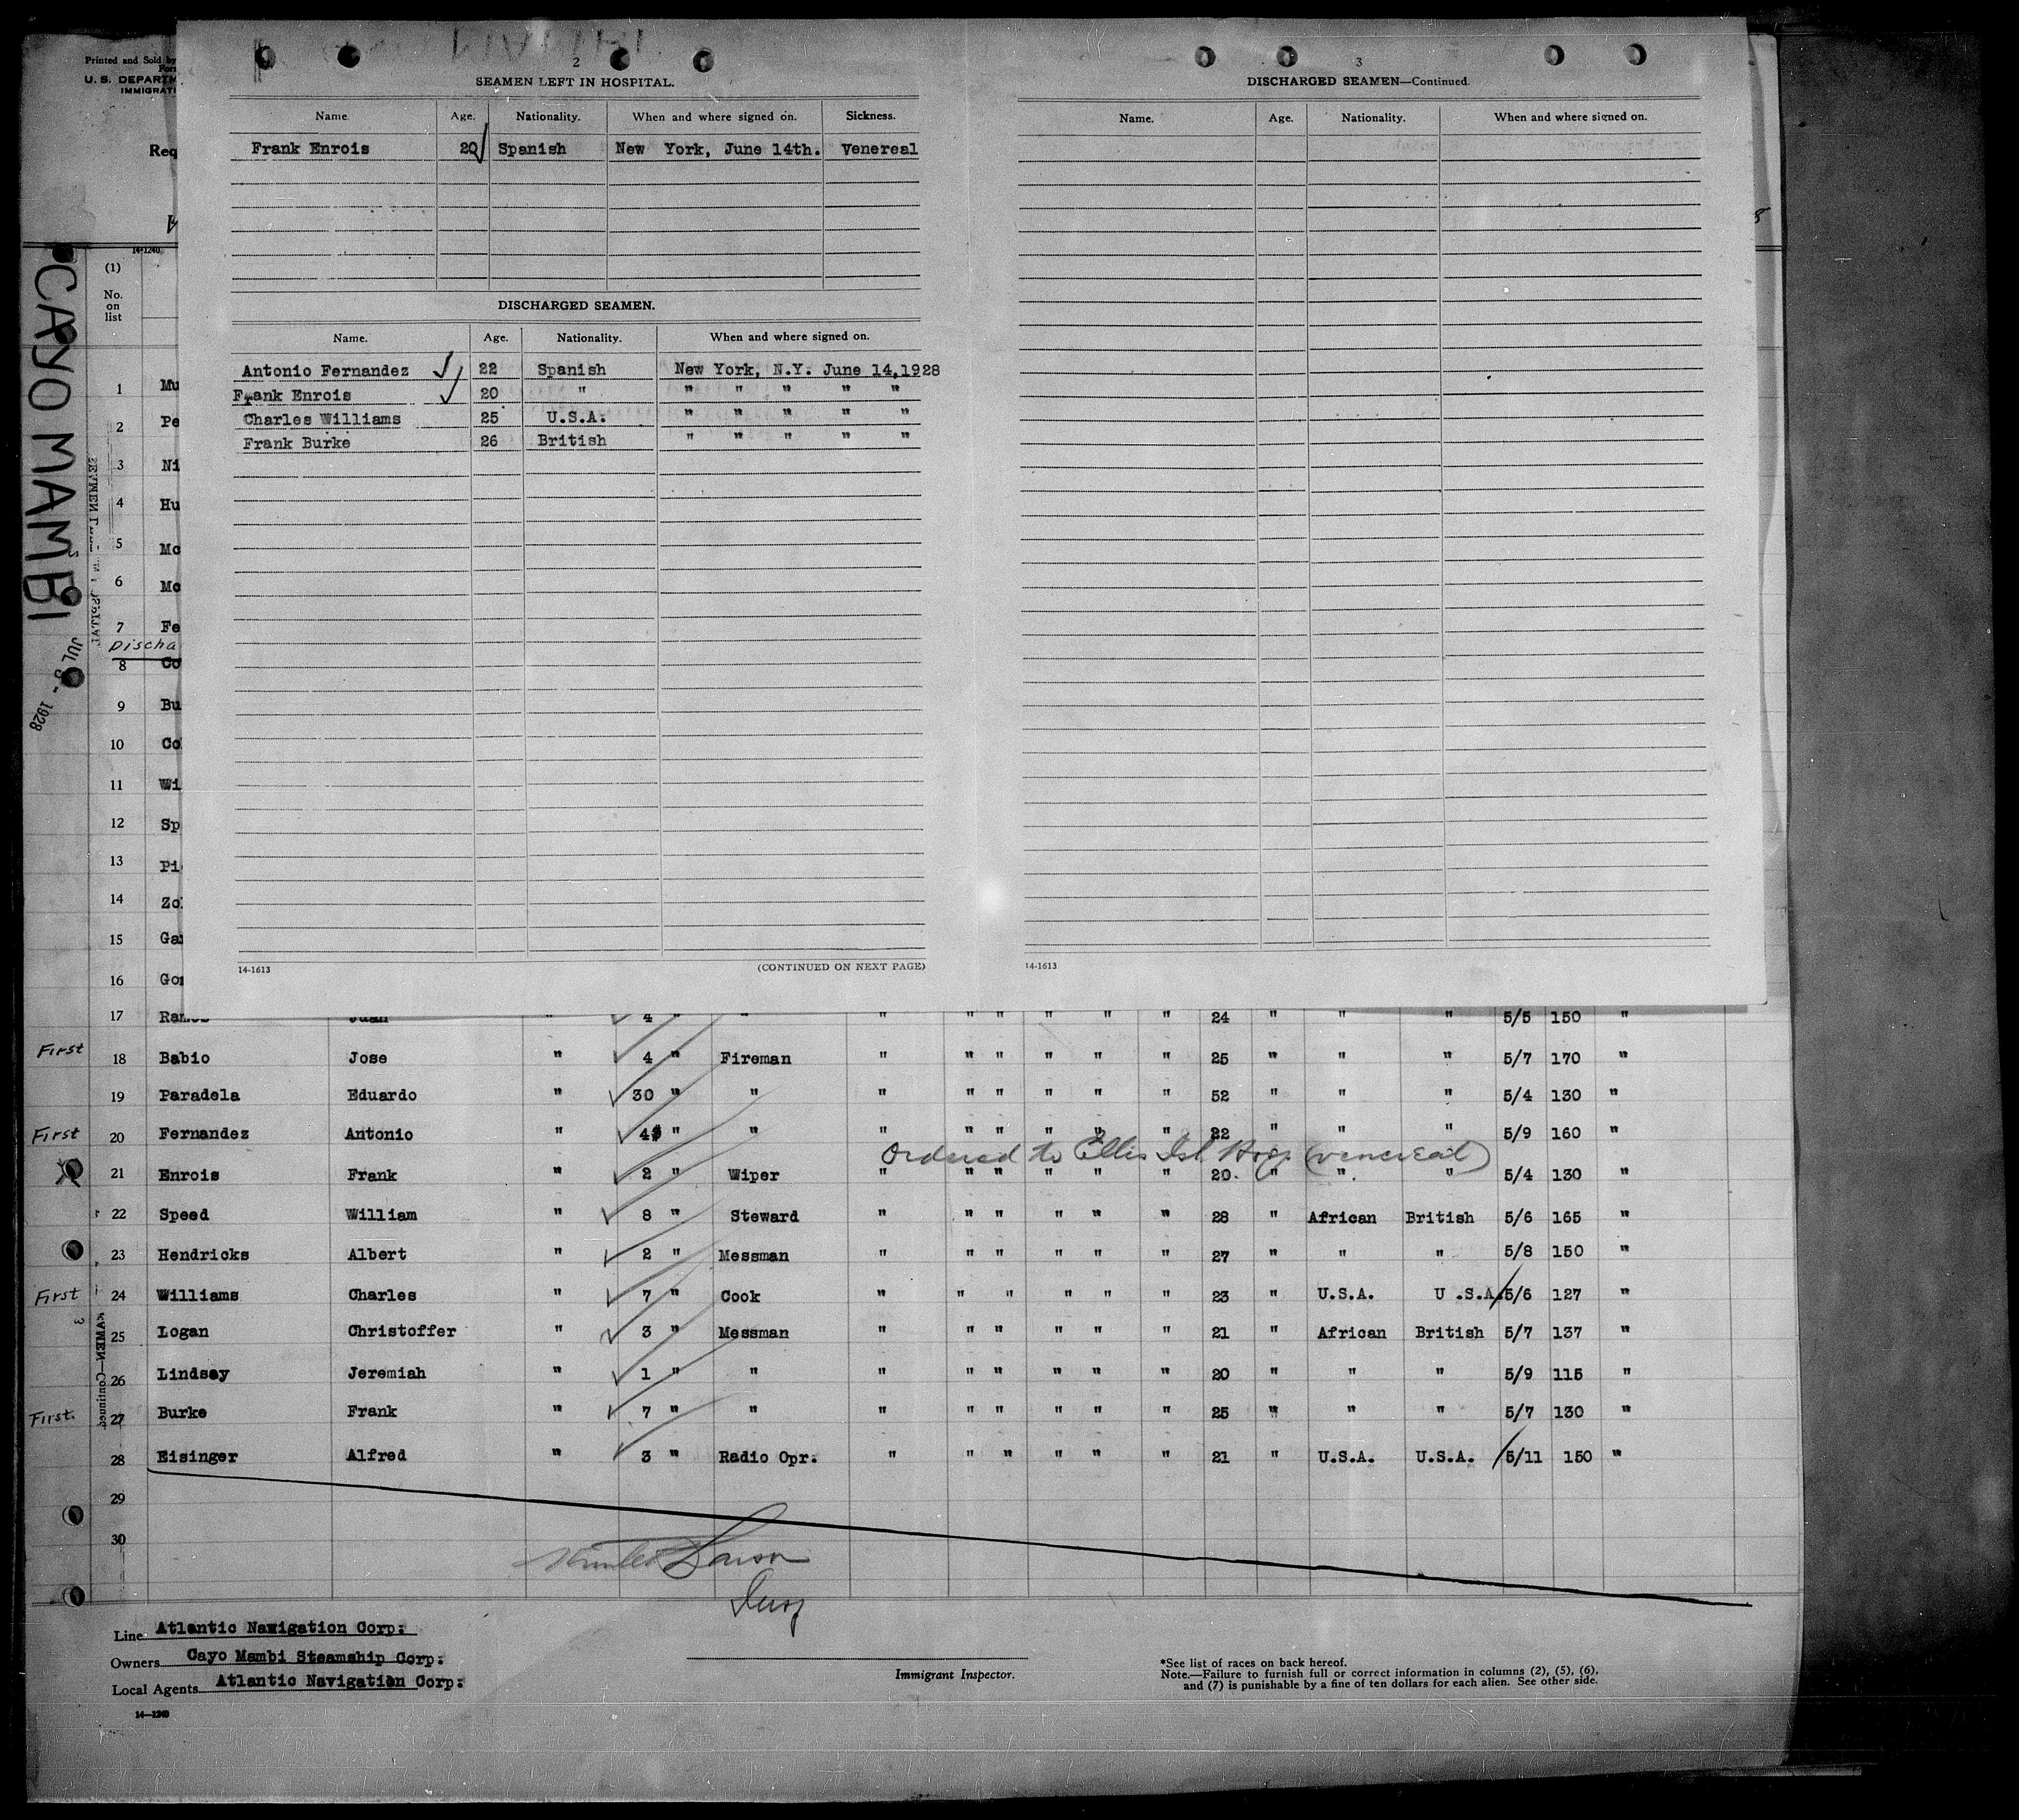 Printed and Sold by
U. S. DEPARTM
IMMIGRATI
Req
14-1240
CAYO MAMBI
JUL 8 - 1928
2
SEAMEN LEFT IN HOSPITAL.
Name. Age. Nationality. When and where signed on. Sickness.
Frank Enrois 20 Spanish New York, June 14th. Venereal
DISCHARGED SEAMEN.
Name. Age. Nationality. When and where signed on.
Antonio Fernandez 22 Spanish New York, N.Y. June 14,1928
Frank Enrois 20 " " " " " "
Charles Williams 25 U.S.A. " " " " "
Frank Burke 26 British " " " " "
14-1613 (CONTINUED ON NEXT PAGE)
3
DISCHARGED SEAMEN—Continued.
Name. Age. Nationality. When and where signed on.
14-1613
(1)
No.
on
list
1 Mu
2 Pe
3 Ni
4 Hu
5 Mc
6 Mo
7 Fe
Discha
8 Co
9 Bu
10 Co
11 Wi
12 Sp
13 Pi
14 Zo
15 Ga
16 Go
17 Ramos Juan " 4 " " " " " " " " 24 " " " 5/5 150 "
First 18 Babio Jose " 4 " Fireman " " " " " " 25 " " " 5/7 170 "
19 Paradela Eduardo " 30 " " " " " " " " 52 " " " 5/4 130 "
First 20 Fernandez Antonio " 4 " " " " " " " " 22 " " " 5/9 160 "
Ordered to Ellis Isl. Hosp (venereal)
21 Enrois Frank " 2 " Wiper " " " " " " 20. " " " 5/4 130 "
22 Speed William " 8 " Steward " " " " " " 28 " African British 5/6 165 "
23 Hendricks Albert " 2 " Messman " " " " " " 27 " " " 5/8 150 "
First 24 Williams Charles " 7 " Cook " " " " " " 23 " U.S.A. U .S.A. 5/6 127 "
25 Logan Christoffer " 3 " Messman " " " " " " 21 " African British 5/7 137 "
26 Lindsey Jeremiah " 1 " " " " " " " " 20 " " " 5/9 115 "
First. 27 Burke Frank " 7 " " " " " " " " 25 " " " 5/7 130 "
28 Eisinger Alfred " 3 " Radio Opr. " " " " " " 21 " U.S.A. U.S.A. 5/11 150 "
29
30
Line Atlantic Navigation Corp.
Owners Cayo Mambi Steamship Corp.
Local Agents Atlantic Navigation Corp.
14—1240
Immigrant Inspector.
*See list of races on back hereof.
Note.—Failure to furnish full or correct information in columns (2), (5), (6),
and (7) is punishable by a fine of ten dollars for each alien. See other side.